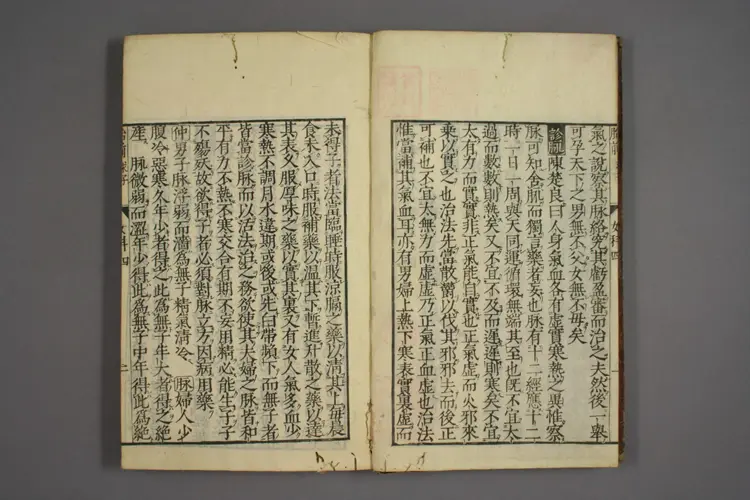 氣之說察其脉絡究其虧盈審而治之夫然後一舉
可孕天下之男無不父女無不母矣
診脉陳楚良曰人身氣血各有虛實寒熱之異惟察
脉可知舍脉而獨言藥者妄也脉有十二經應十二
時一日一周與天同運循環無端其至也旣不宜太
過而數數則熱矣又不宜不及而遲遲則寒矣不宜
太有力而實實非正氣能自實也正氣虛而火邪來
乘以實之也治法先當散欝以伐其邪邪去而後正
可補也不宜太無力而虛虛乃正氣正血虛也治法
惟當補其氣血耳亦有男婦上熱下寒表實裏虛而
未得子者法當臨睡時服涼膈之藥以清其上每晨
食未入口時服補藥以温其下暫進升散之藥以達
其表久服厚味之藥以實其裏又有女人氣多血少
寒熱不調月水違期或後或先白帶頻下而無子者
皆當診脉而以活法治之務欲使其夫婦之脉皆和
平有力不熱不寒交合有期不妄用精必能生子子
不殤殀故欲得子者必須對脉立方因病用藥
仲男子脉浮弱而濇為無子精氣清冷 脉婦人少
腹冷惡寒久年少者得之此為無子年大者得之絶
産 脉微弱而濇年少得此為無子中年得此為絶
女科四
一
女科四
二